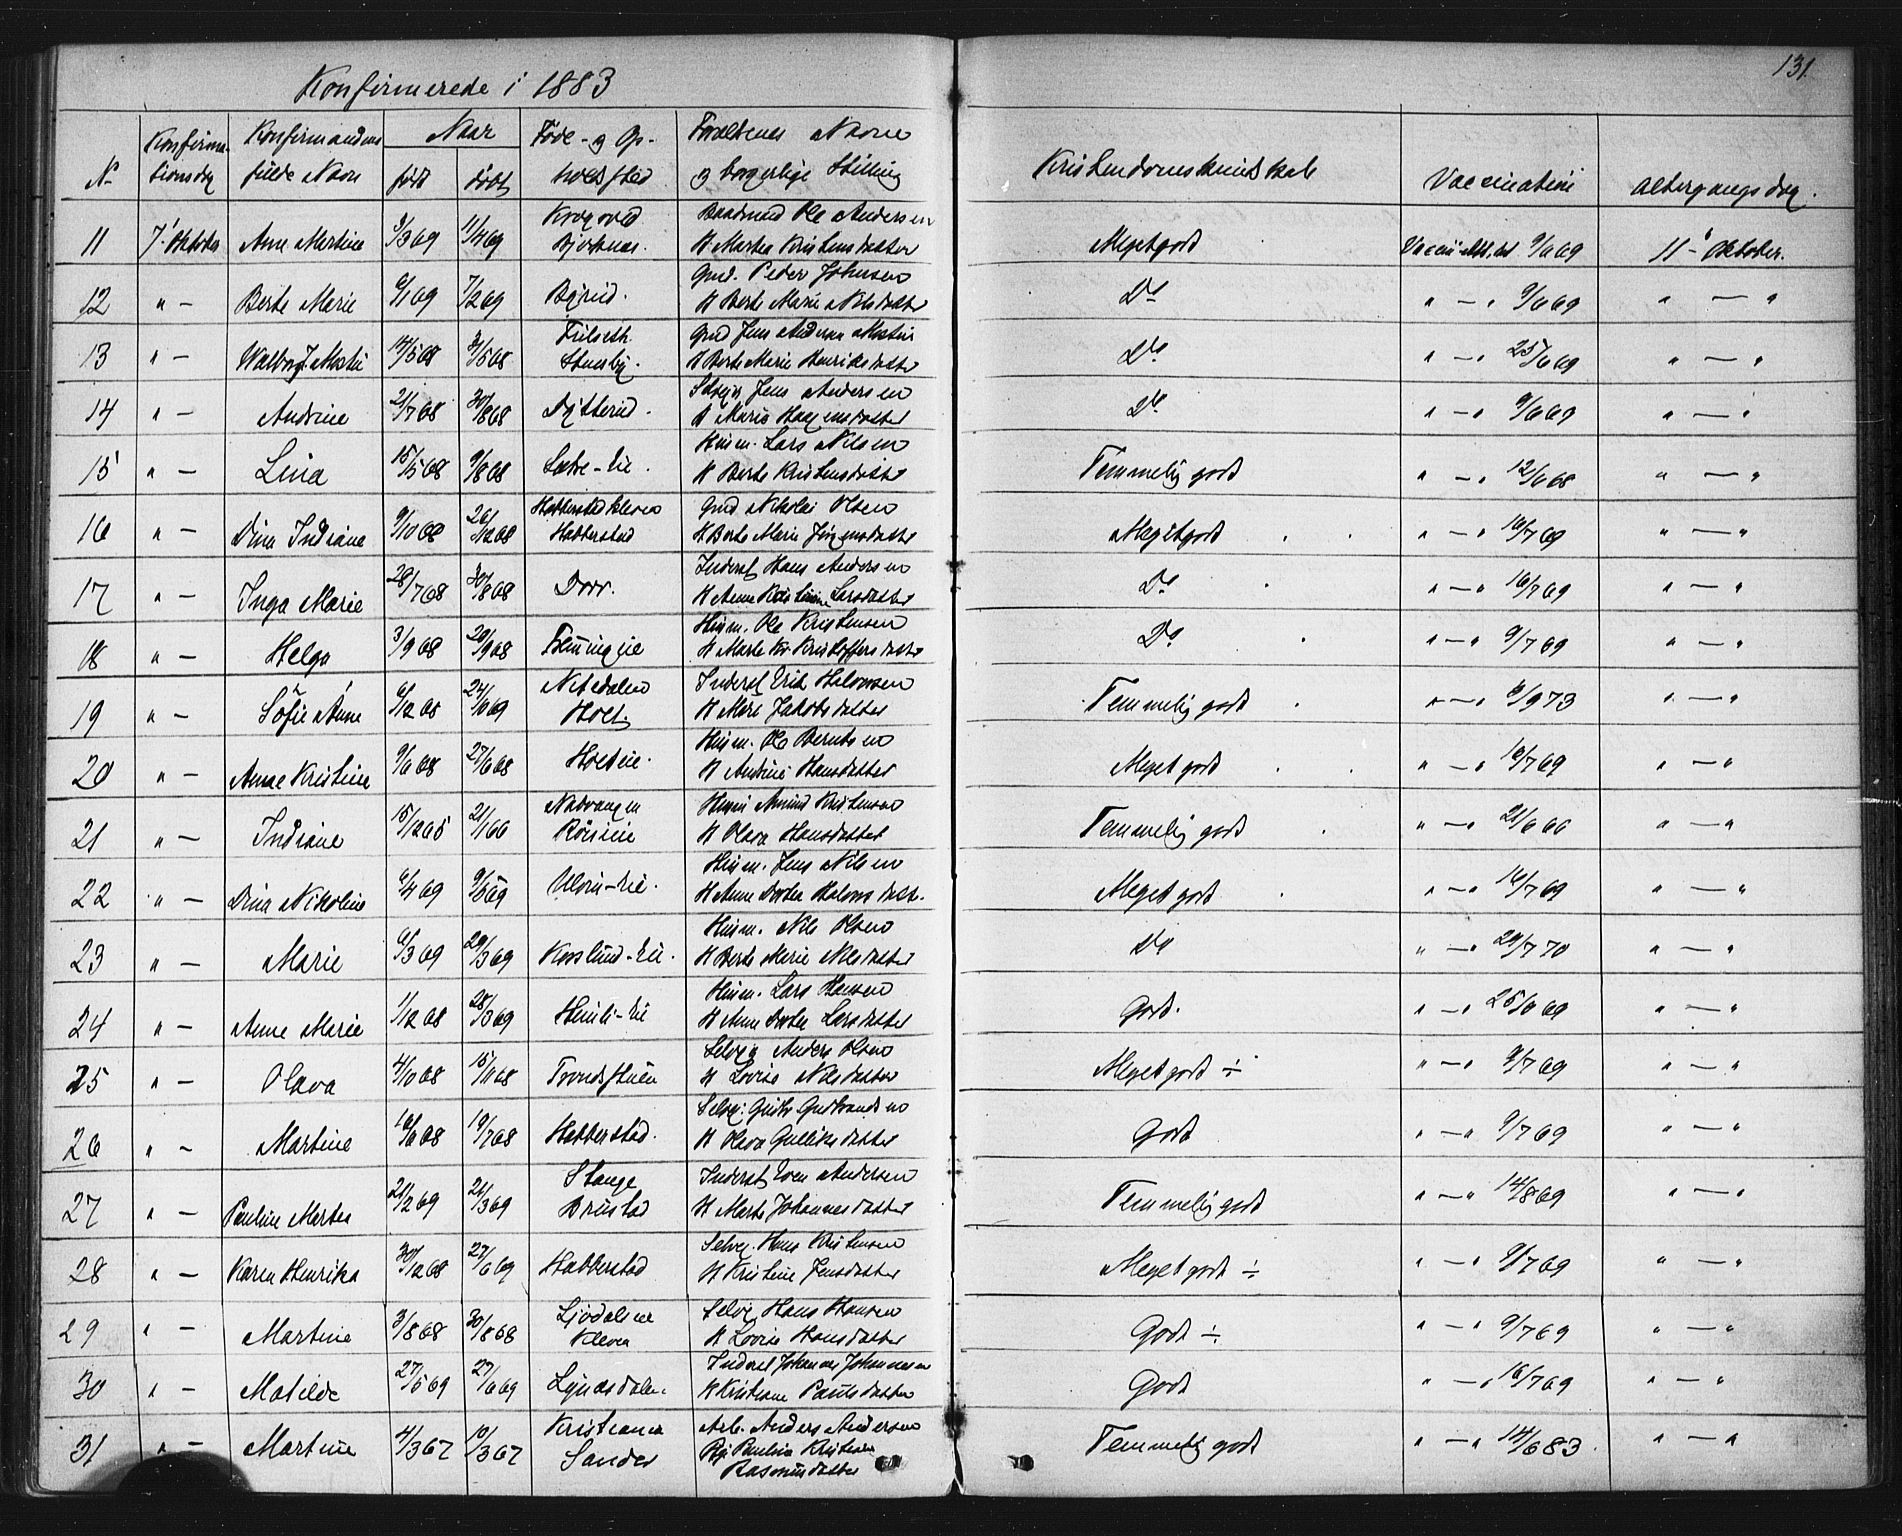 131.
Konfirmerede i 1883
N. Konfirmationsdag Konfirmandens fulde Navn Naar født døbt Føde- og Opholdssted Forældrenes Navne og borgerlige Stilling Kristendomskundskab Vaccination Altergangsdag.
11 7' Oktober Anne Martine 9/3 69 11/4 69 Ole Andersen Meget godt 9/6 69 11' Oktober.
12 " – Berte Marie 6/1 69 7/2 69 Gmd. Peder Johnsen H Berte Marie Nilsdatter Do " – " 9/6 69 " – "
13 " – 14/5 68 31/5 68 Stensby. H Berte Marie Henriksdatter Do " – " 25/6 69 " – "
14 " – Andrine 21/7 68 30/8 68 Jens Andersen Do " – " 9/6 69 " – "
15 " – Lina 15/5 68 9/8 68 Husm. Lars Nilsen H Berte Kristensdatter Temmelig godt " – " 12/6 68 " – "
16 " – Dina Indiane 9/10 68 26/12 68 Habberstad Gmd Nikolai Olsen H Berte Marie Jørgensdatter Meget godt " – " 16/7 69 " – "
17 " – Inga Marie 28/7 68 30/8 68 Dorr. Inderst Hans Andersen H Anne Kristine Larsdatter Do " – " 16/7 69 " – "
18 " – Helga 3/9 68 20/9 68 Husm. Ole Kristensen H Marte Kr Kristoffersdatter Do " – " 9/7 69 " – "
19 " – Sofie Anne 6/12 68 24/10 69 Nitedalen Holt. Inderst Erik Halvorsen H Mari Jakobsdatter Temmelig godt " – " 6/9 73 " – "
20 " – Anne Kristine 9/6 68 27/6 68 Holteie. Husm. Ole Berntsen H Andrine Hansdatter Meget godt " – " 16/7 69 " – "
21 " – Indiane 15/12 65 21/1 66 Husm Amund Kristensen H Olava Hansdatter Temmelig godt " – " 21/6 66 " – "
22 " – Dina Nikoline 6/4 69 9/5 69 Husm. Jens Nilsen H Anne Dortea Halvorsdatt. Meget godt " – " 16/7 69 " – "
23 " – Marie 6/3 69 29/3 69 Husm. Nils Olsen H Berte Marie Nilsdatter Do " – " 29/7 70 " – "
24 " – Anne Marie 1/12 68 28/3 69 Husm. Lars Hansen H Anne Dortea Larsdatter Godt. " – " 25/6 69 " – "
25 " – Olava 4/10 68 15/11 68 Selvej Anders Olsen H Lovise Nilsdatter Meget godt ÷ " – " 9/7 69 " – "
26 " – Martine 16/6 68 19/7 68 Habberstad. Selvej. Gudbrandsen H Olava Gulliksdatter Godt " – " 9/7 69 " – "
27 " – Pauline Martea 21/2 69 21/3 69 Stange Brustad Inderst Even Andersen H Marte Johannesdatter Temmelig godt " – " 14/8 69 " – "
28 " – Karen Henrika 30/12 68 27/6 69 Habberstad Selvej. Hans Kristensen H Kristine Jensdatter Meget godt ÷ " – " 9/7 69 " – "
29 " – Martine 3/8 68 30/8 68 Kleven Selvej Hans Hansen H Lovise Hansdatter Godt ÷ " – " 9/7 69 " – "
30 " – Matilde 27/5 69 27/6 69 Inderst Johannes Johannesen H Kristiane Paulsdatter Godt " – " 16/7 69 " – "
31 " – Martine 4/3 67 10/3 67 Kristiania Sander Arb. Anders Andersen Pg Paulina Kristiane Rasmusdatter Temmelig godt " – " 14/6 83 " – "